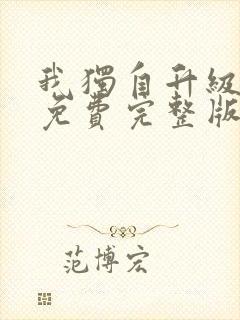 我獨自升級
免費完整版
范博宏